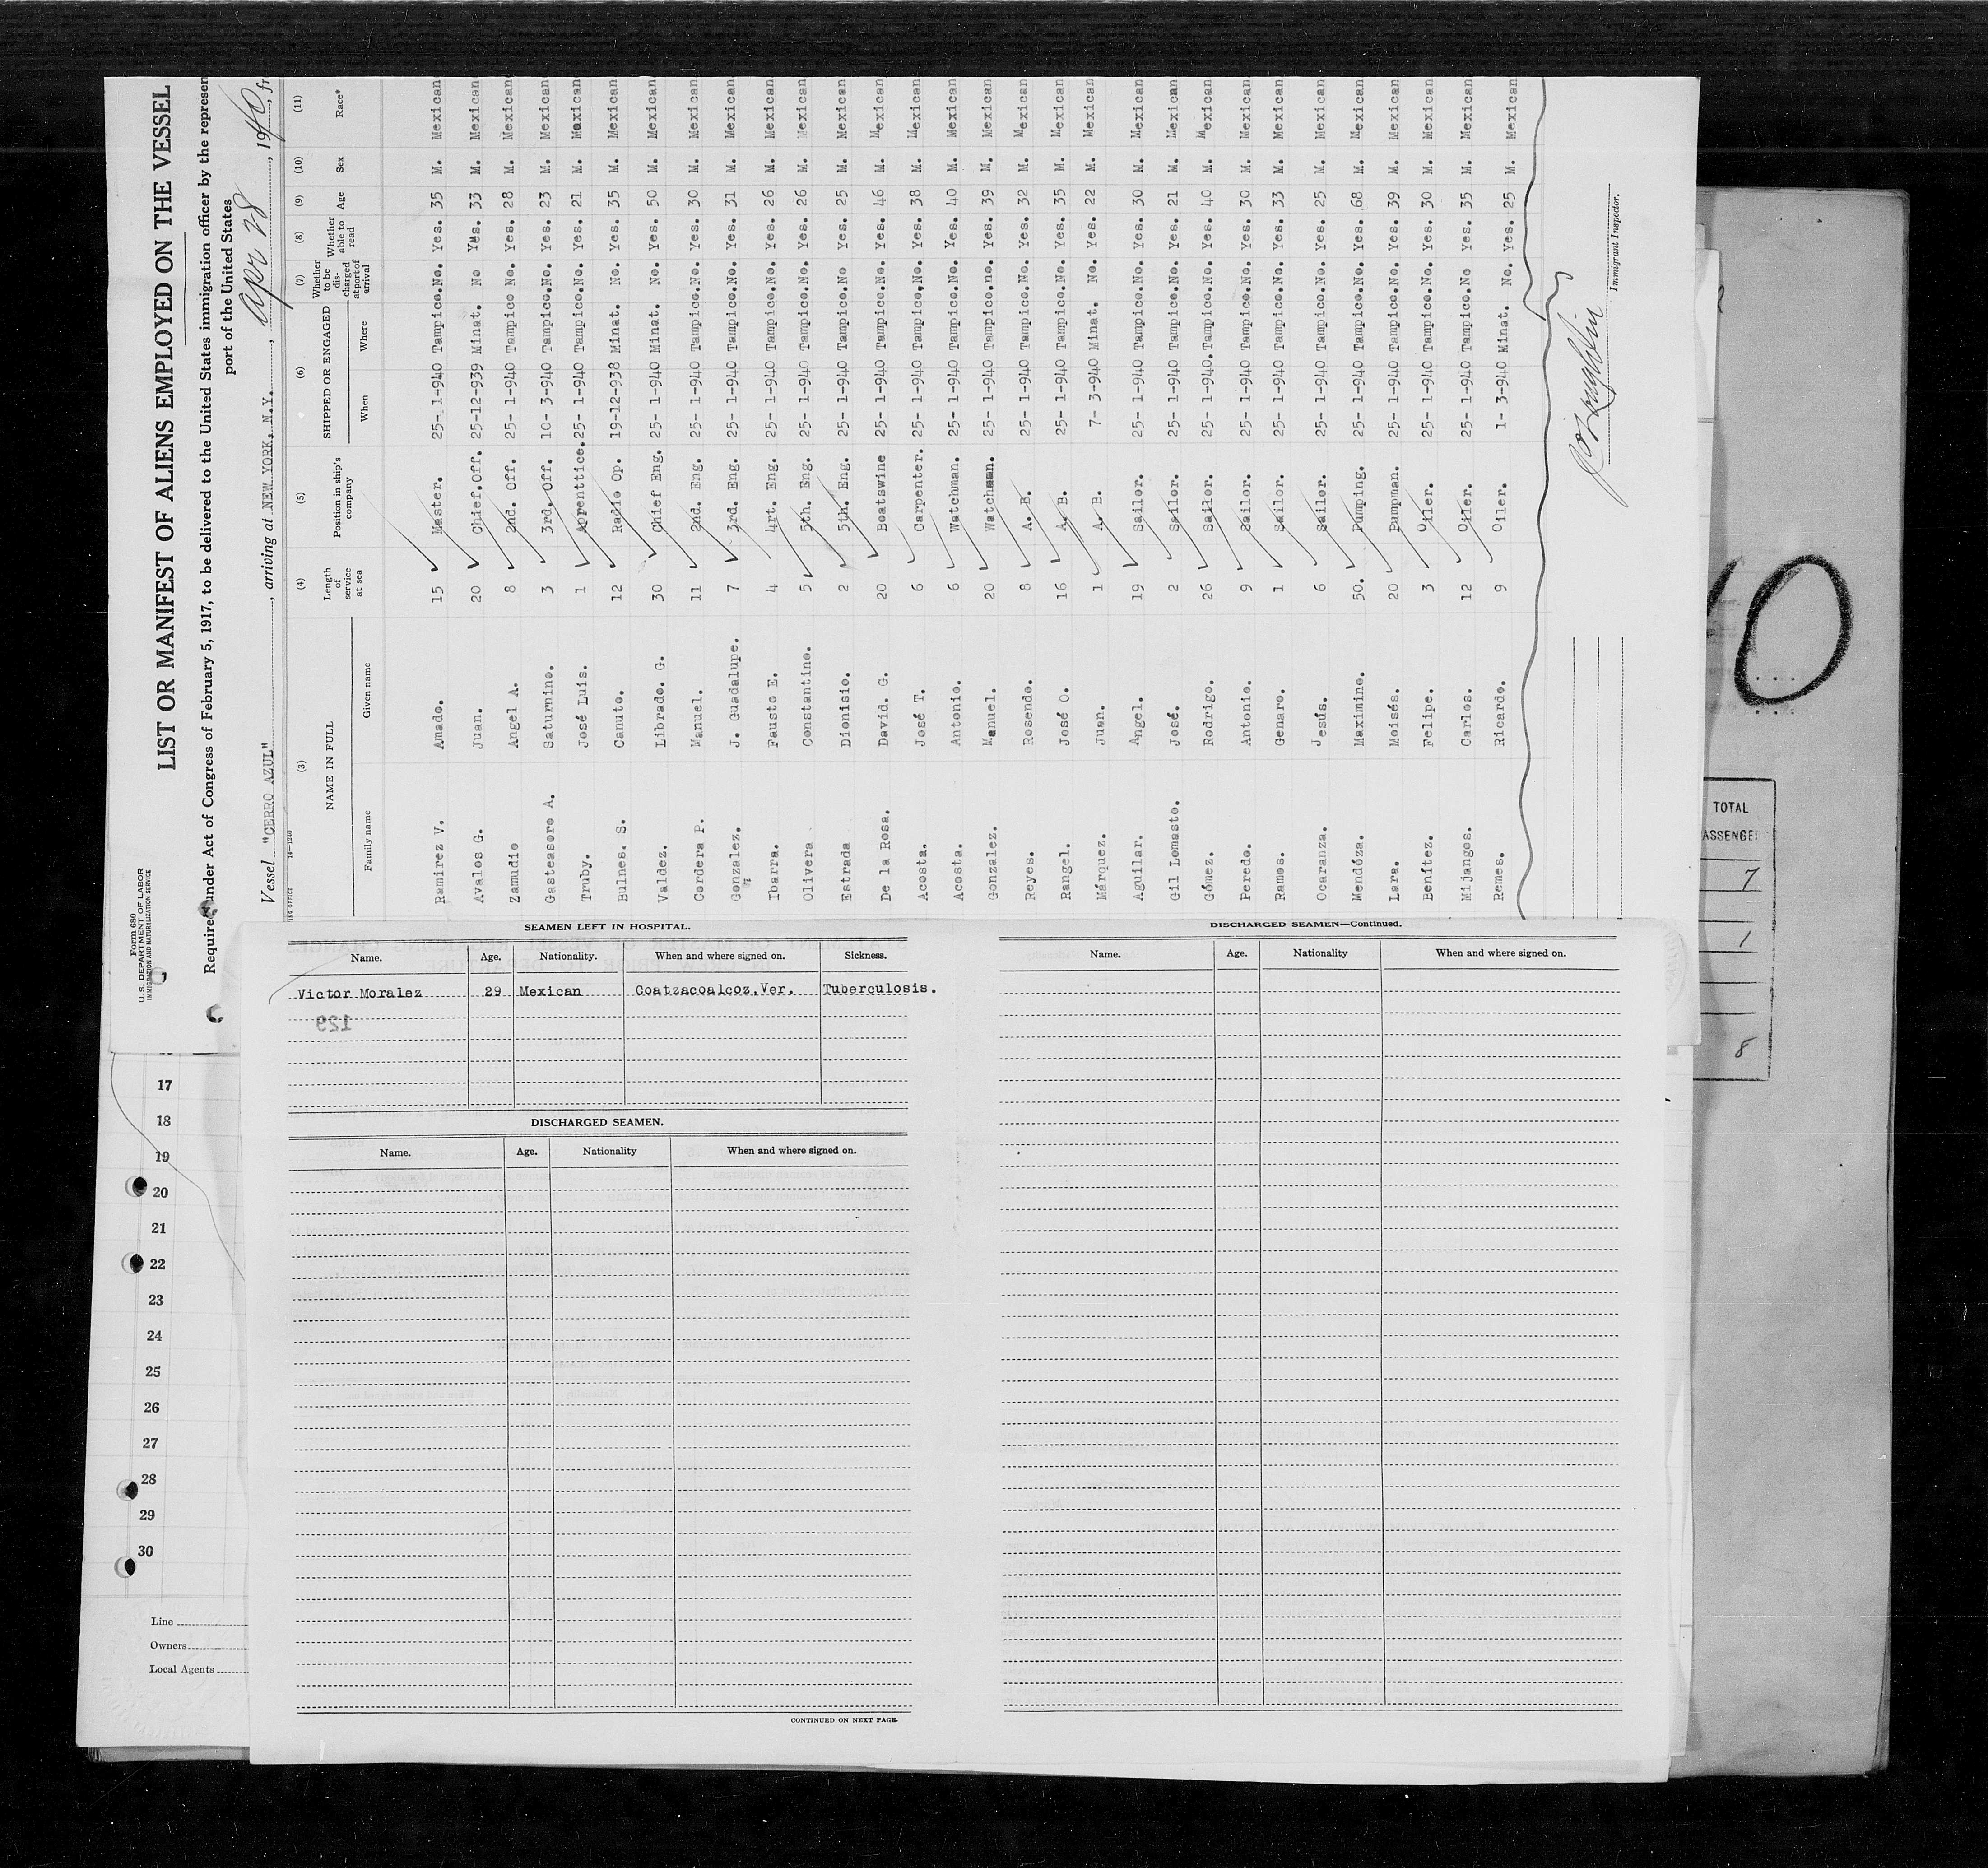 Form 680
U. S. DEPARTMENT OF LABOR
IMMIGRATION AND NATURALIZATION SERVICE
LIST OR MANIFEST OF ALIENS EMPLOYED ON THE VESSEL
Required under Act of Congress of February 5, 1917, to be delivered to the United States immigration officer by the represen
port of the United States
Vessel "CERRO AZUL", arriving at NEW YORK, N.Y., Apr 28, 1940, fr
14—1240
(3) (4) (5) (6) (7) (8) (9) (10) (11)
NAME IN FULL Length of service at sea Position in ship's company SHIPPED OR ENGAGED Whether to be discharged at port of arrival Whether able to read Age Sex Race*
Family name Given name When Where
Ramirez V. Amado. 15 Master. 25- 1-940 Tampico. No. Yes. 35 M. Mexican
Avalos G. Juan. 20 Chief.off. 25-12-939 Minat. No Yes. 33 M. Mexican
Zamudio Angel A. 8 2nd. Off. 25- 1-940 Tampico No. Yes. 28 M. Mexican
Gasteasoro A. Saturnino. 3 3rd. Off. 10- 3-940 Tampico. No. Yes. 23 M. Mexican
Truby. José Luis. 1 Aprenttice. 25- 1-940 Tampico. No. Yes. 21 M. Mexican
Bulnes. S. Canuto. 12 Radio Op. 19-12-938 Minat. No. Yes. 35 M. Mexican
Valdez. Librado. G. 30 Chief Eng. 25- 1-940 Minat. No. Yes. 50 M. Mexican
Cordera P. Manuel. 11 2nd. Eng. 25- 1-940 Tampico. No. Yes. 30 M. Mexican
Gonzalez. J. Guadalupe. 7 3rd. Eng. 25- 1-940 Tampico. No. Yes. 31 M. Mexican
Ibarra. Fausto E. 4 4rt. Eng. 25- 1-940 Tampico. No. Yes. 26 M. Mexican
Olivera Constantino. 5 5th. Eng. 25- 1-940 Tampico. No. Yes. 26 M. Mexican
Estrada Dionisio. 2 5th. Eng. 25- 1-940 Tampico. No Yes. 25 M. Mexican
De la Rosa. David. G. 20 Boatswine 25- 1-940 Tampico. No. Yes. 46 M. Mexican
Acosta. José T. 6 Carpenter. 25- 1-940 Tampico. No. Yes. 38 M. Mexican
Acosta. Antonio. 6 Watchman. 25- 1-940 Tampico. No. Yes. 40 M. Mexican
Gonzalez. Manuel. 20 Watchman. 25- 1-940 Tampico. no. Yes. 39 M. Mexican
Reyes. Rosendo. 8 A. B. 25- 1-940 Tampico. No. Yes. 32 M. Mexican
Rangel. José O. 16 A. B. 25- 1-940 Tampico. No. Yes. 35 M. Mexican
Márquez. Juan. 1 A. B. 7- 3-940 Minat. No. Yes. 22 M. Mexican
Aguilar. Angel. 19 Sailor. 25- 1-940 Tampico. No. Yes. 30 M. Mexican
Gil Lomasto. José. 2 Sailor. 25- 1-940 Tampico. No. Yes. 21 M. Mexican
Gómez. Rodrigo. 26 Sailor. 25- 1-940. Tampico. No. Yes. 40 M. Mexican
Peredo. Antonio. 9 Sailor. 25- 1-940 Tampico. No. Yes. 30 M. Mexican
Ramos. Genaro. 1 Sailor. 25- 1-940 Tampico. No. Yes. 33 M. Mexican
Ocaranza. Jesús. 6 Sailor. 25- 1-940 Tampico. No. Yes. 25 M. Mexican
Mendóza. Maximino. 50. Pumping. 25- 1-940 Tampico. No. Yes. 68 M. Mexican
Lara. Moisés. 20 Pumpman. 25- 1-940 Tampico. No. Yes. 39 M. Mexican
Benítez. Felipe. 3 Oiler. 25- 1-940 Tampico. No. Yes. 30 M. Mexican
Mijangos. Carlos. 12 Oiler. 25- 1-940 Tampico. No Yes. 35 M. Mexican
Remes. Ricardo. 9 Oiler. 1- 3-940 Minat. No. Yes. 25 M. Mexican
Immigrant Inspector.
TOTAL
PASSENGER
7
1
8
SEAMEN LEFT IN HOSPITAL.
Name. Age. Nationality. When and where signed on. Sickness.
Victor Moralez 29 Mexican Coatzacoalcoz,Ver. Tuberculosis.
129
DISCHARGED SEAMEN.
Name. Age. Nationality When and where signed on.
CONTINUED ON NEXT PAGE.
DISCHARGED SEAMEN—Continued.
Name. Age. Nationality When and where signed on.
17
18
19
20
21
22
23
24
25
26
27
28
29
30
Line
Owners
Local Agents